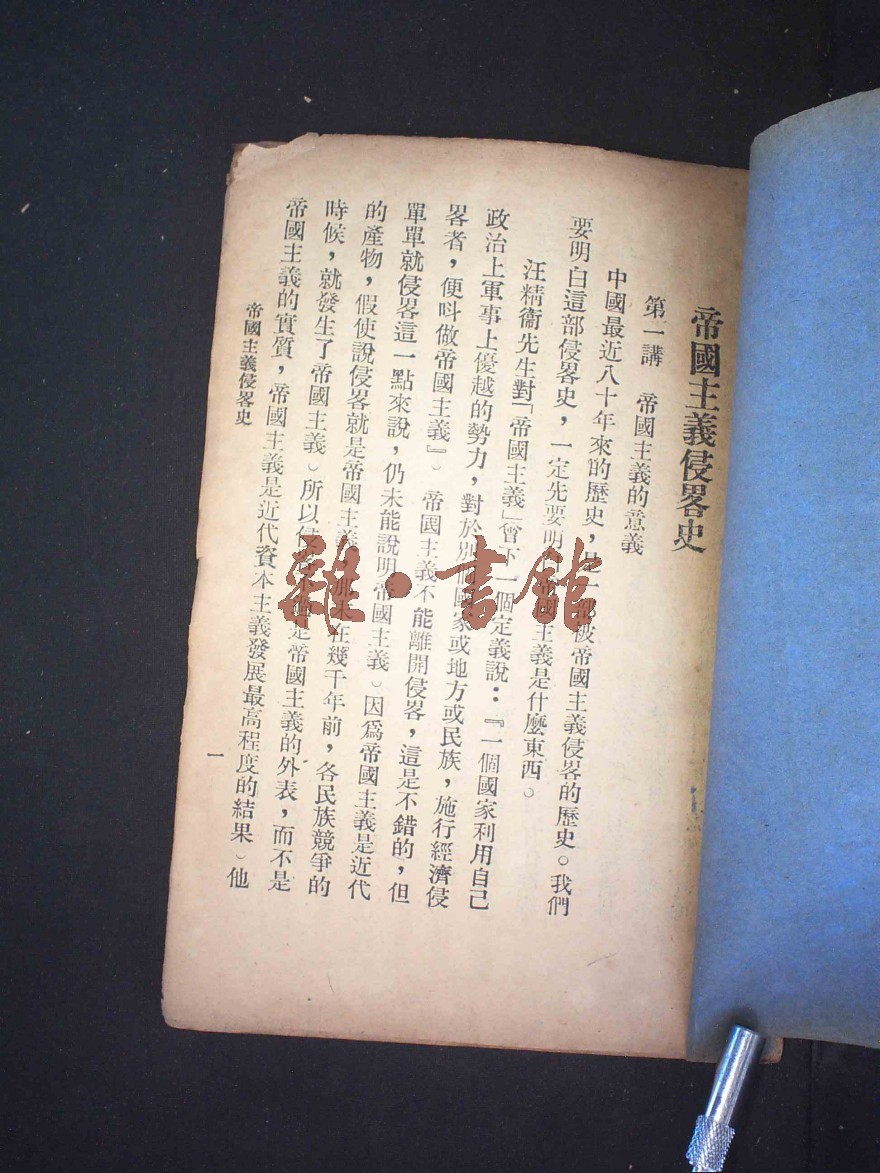 帝國主義侵畧史
第一講　帝國主義的意義
中國最近八十年來的歷史，是一部被帝國主義侵畧的歷史。我們
要明白這部侵畧史，一定先要明白帝國主義是什麼東西。
汪精衞先生對「帝國主義」曾下一個定義說：『一個國家利用自己
政治上軍事上優越的勢力，對於別個國家或地方或民族，施行經濟侵
畧者，便呌做帝國主義』。帝國主義不能離開侵畧，這是不錯的，但
單單就侵畧這一點來說，仍未能說明帝國主義。因爲帝國主義是近代
的產物，假使說侵畧就是帝國主義，那末在幾千年前，各民族競爭的
時候，就發生了帝國主義。所以侵畧是帝國主義的外表，而不是
帝國主義的實質，帝國主義是近代資本主義發展最高程度的結果。他
帝國主義侵畧史
一
雜·書館